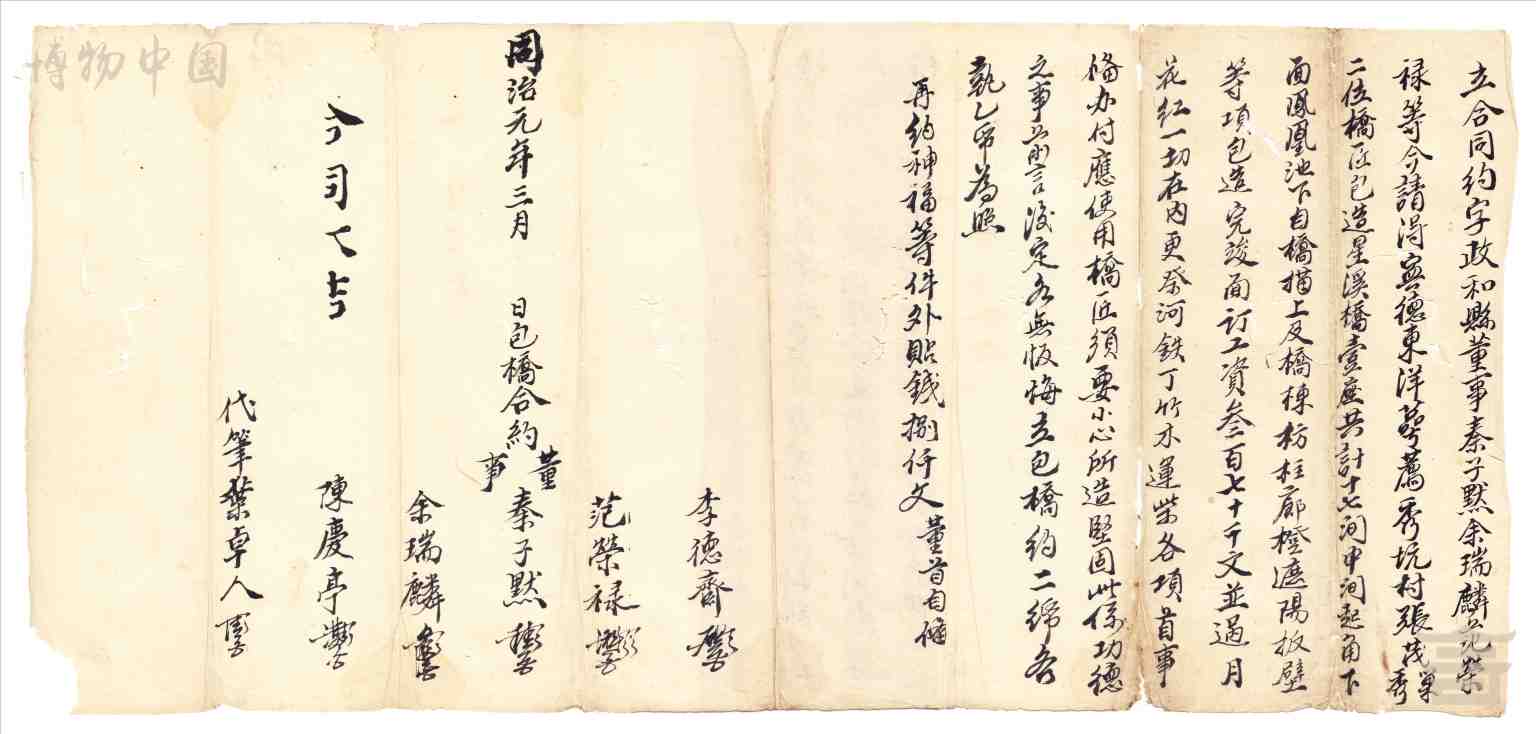 立合同約字政和縣董事秦子默余瑞麟范榮
禄等今請得寧德東洋蕚薦秀坑村張茂巢秀
二位橋匠包造星溪橋壹座共計十七间中间起角下
面鳳凰池下自橋 上及橋棟枋柱廊橙遮陽板壁
等項包造完竣面订工資叁百七十千文並過月
花红一切在内更祭河鉄丁竹木運柴各項首事
偹办付應使用橋匠須要小心所造堅固此係功德
之事 言後定各無恢悔立包橋約二 各
執乙 為照
再约神福等件外貼錢捌仟文董首自偹
李德齋
范榮禄
同治元年三月 日包橋合約董事秦子默
余瑞麟
陳慶亭
代筆葉卓人
博物中国